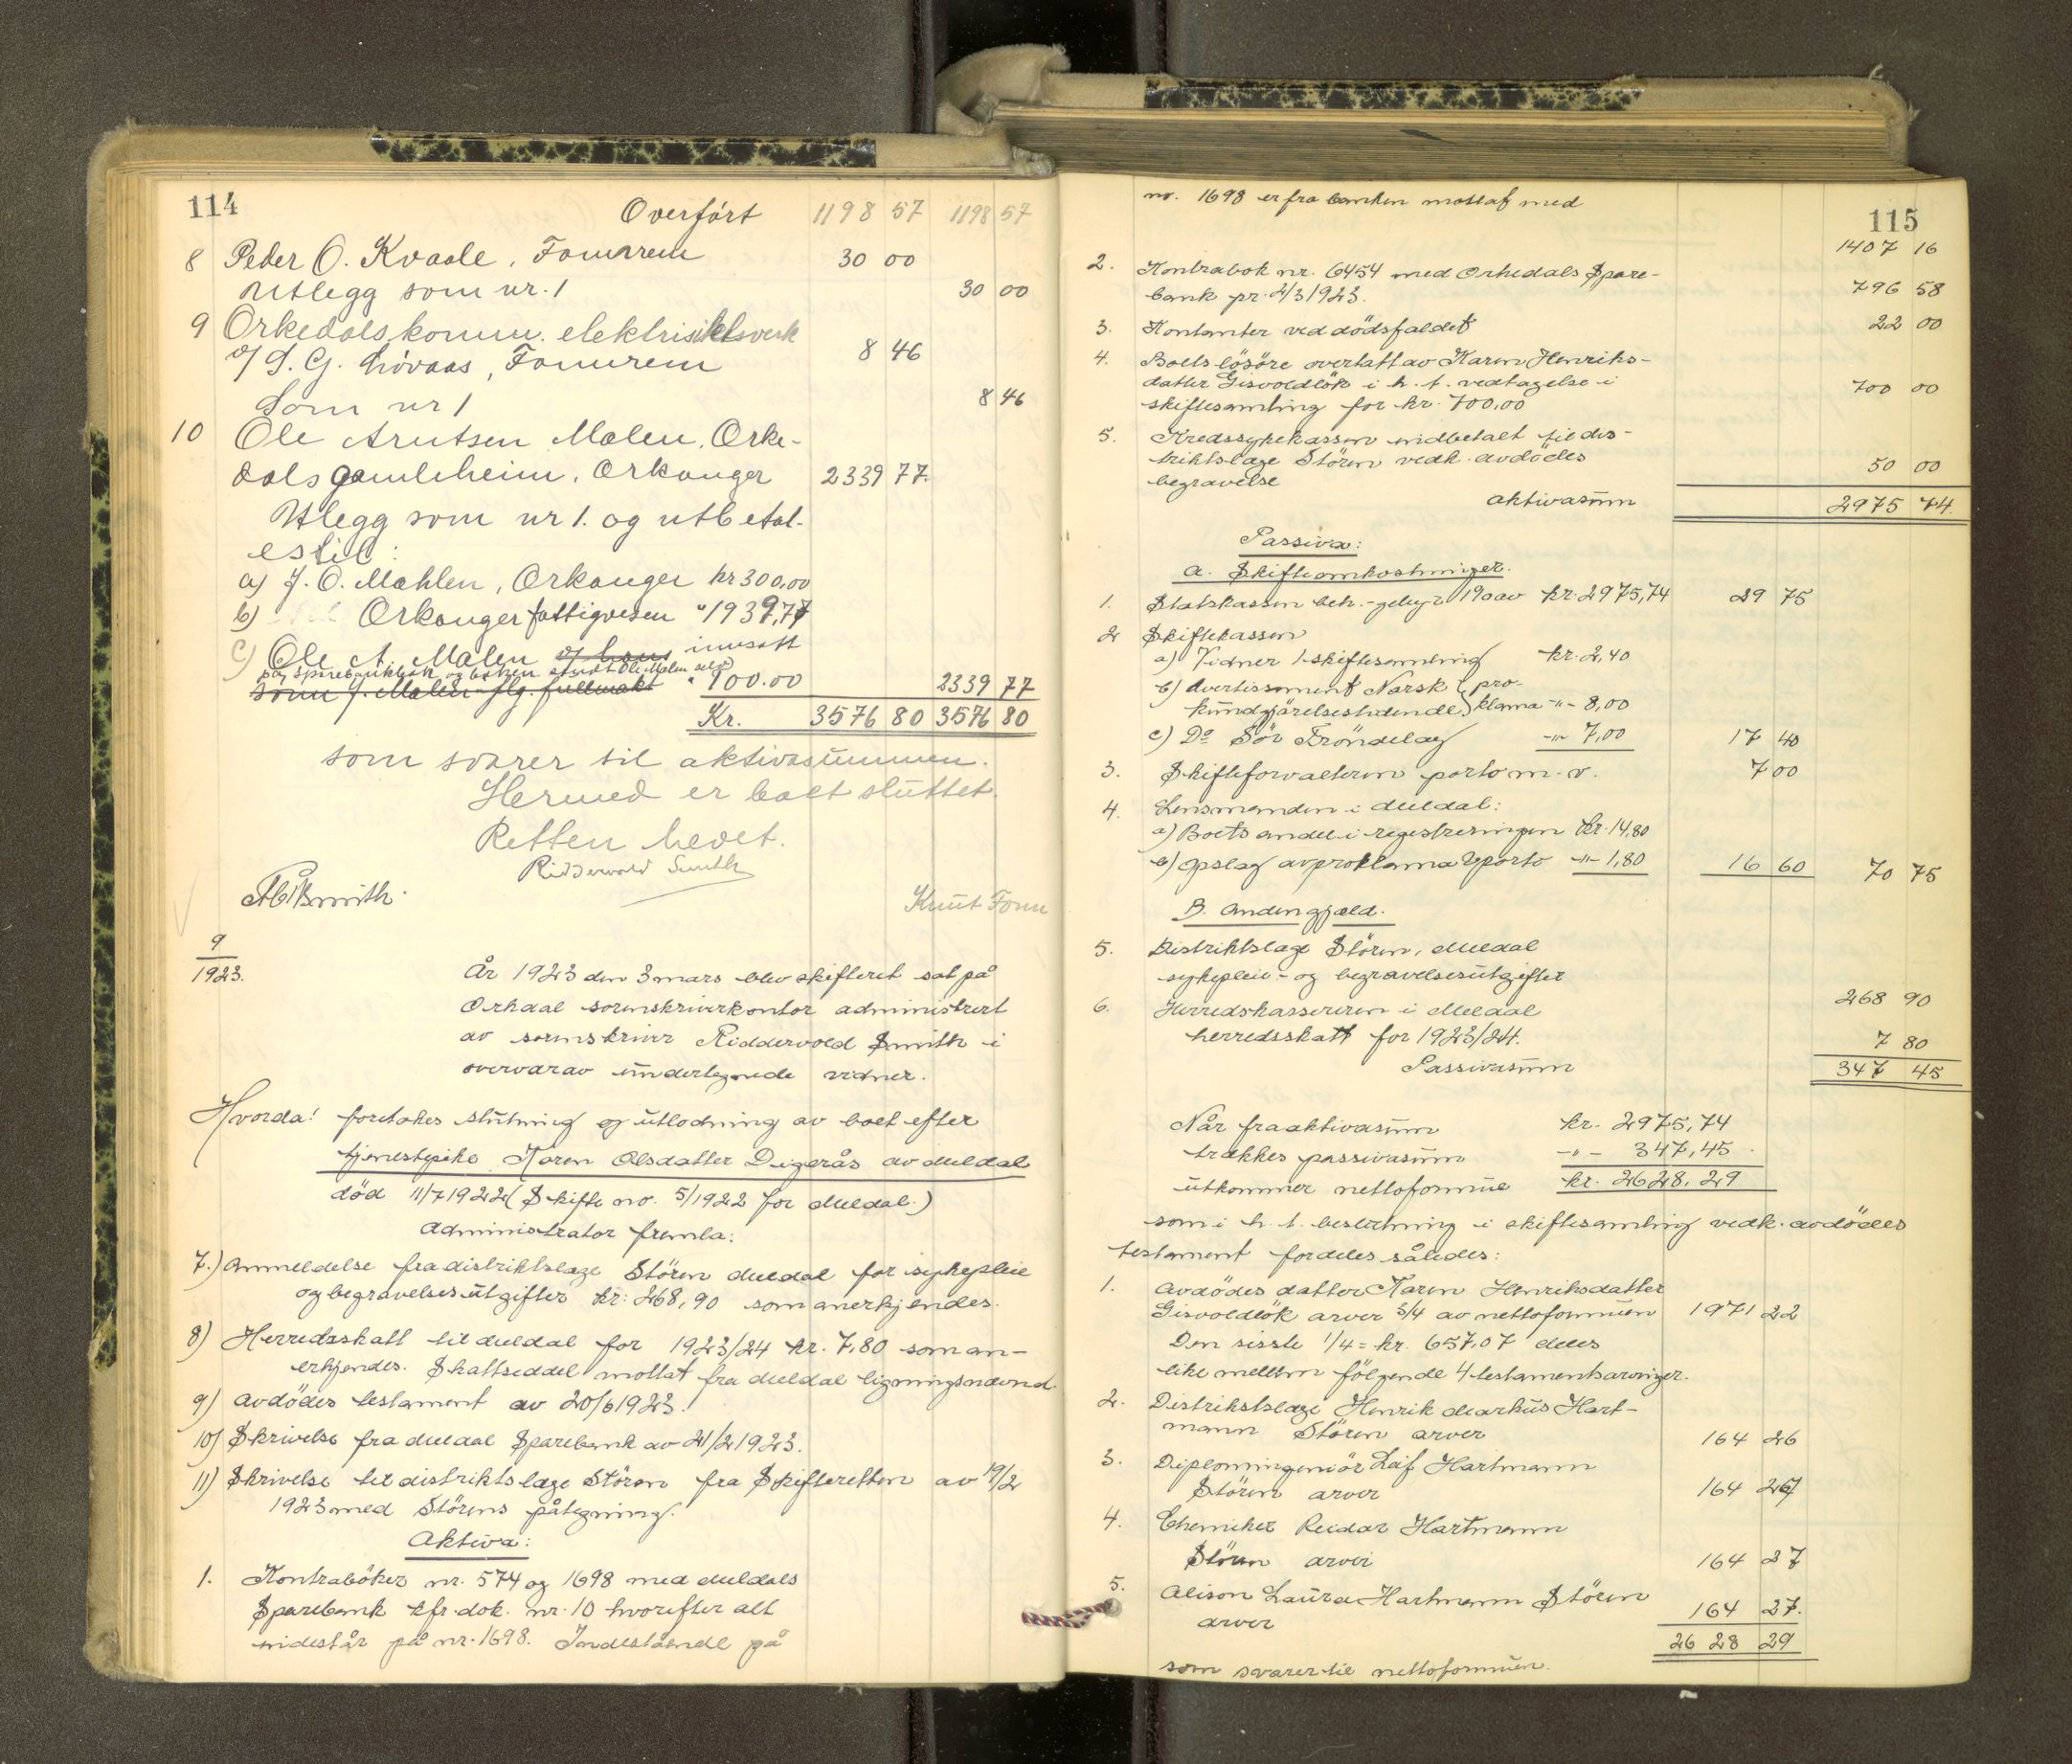 114
Overført 1198 57 1198 57
8 Peder O. Kvaale, Fannrem 30 00
Utlegg som nr. 1 30 00
9 Orkedals komm. elektrisitetsverk
v/ S. G. Livaas, Fannrem 8 46
Som nr 1 8 46
10 Ole Arntsen Malen, Orke-
dals gamleheim, Orkanger 2339 77.
Utlegg som nr 1. og utbetal-
es til:
a) J. O. Mahlen, Orkanger kr 300,00
b) Orkanger fattigvesen " 1939,77
c) Ole A. Malen og hans innsatt
på sparebankbok og boken sendt Ole Malen selv
sønn J. Malen flg. fullmakt " 100.00 2339 77
Kr. 3576 80 3576 80
som svarer til aktivasummen.
Hermed er boet sluttet.
Retten hevet.
Riddervold Smith
Smith. Knut Fonn
9
1923.
År 1923 den 3 mars blev skifteret sat på
Orkdal sorenskriverkontor administrert
av sorenskriver Riddervold Smith i
overvær av undertegnede vidner.
Hvorda! foretokes slutning og utlodning av boet efter
tjenestepike Karen Olsdatter Digerås av Meldal
død 11/7 1922 (Skifte no. 5/1922 for Meldal.)
Administrator fremla:
7.) Anmeldelse fra distriktslæge Stören Meldal for sykepleie
og begravelsesutgifter kr: 268,90 som anerkjendes.
8) Herredsskatt til Meldal for 1923/24 kr. 7,80 som an-
erkjendes. Skattseddel mottat fra Meldal ligningsnevnd.
9) Avdödes testament av 20/6 1923.
10) Skrivelse fra Meldal Sparebank av 21/2 1923.
11) Skrivelse til distriktslæge Stören fra Skifteretten av 19/2
1923 med Störens påtegning.
Aktiva:
1. Kontraböker nr. 574 og 1698 med Meldals
Sparebank kfr. dok. nr. 10 hvorefter alt
indestår på nr. 1698. Indestående på
115
no. 1698 er fra banken mottat med
1407 16
2. Kontrabok nr. 6454 med Orkedals Spare-
bank pr. 2/3 1923. 796 58
3. Kontanter ved dödsfaldet 22 00
4. Boets lösöre overtatt av Karen Henriks-
datter Gisvoldlök i h. t. vedtagelse i
skiftesamling for kr. 700,00 700 00
5. Kredssykekassen indbetalt til dis-
triktslæge Stören vedk. avdödes
begravelse 50 00
Aktivasum 2975 74.
Passiva:
a. Skifteomkostninger.
1. Statskassen beh.-gebyr 1% av kr. 2975,74 29 75
2 Skiftekassen
a) Vidner 1 skiftesamling kr. 2,40
b) Avertissement Norsk } pro-
kundgjörelsestidende } klama -"- 8,00
c) Do Sör Tröndelag -"- 7,00 17 40
3. Skifteforvalteren porto m. v. 7 00
4. Lensmanden i Meldal:
a) Boets andel i registreringen kr. 14,80
b) Opslag av proklama & porto -"- 1,80 16 60 70 75
B. Anden gjæld.
5. Distriktslæge Stören, Meldal
sykepleie- og begravelsesutgifter
268 90
6. Herredskassereren i Meldal
herredsskatt for 1923/24. 7 80
Passivasum 347 45
Når fra aktivasum kr. 2975,74
trækkes passivasum -"- 347,45
utkommer nettoformue kr. 2628.29
som i h. t. bestemning i skiftesamling vedk. avdödes
testament fordeles således:
1. Avdödes datter Karen Henriksdatter
Gisvoldlök arver 3/4 av nettoformuen 1971 22
Den sisste 1/4 = kr. 657.07 deles
like mellem fölgende 4 testamentsarvinger.
2. Distriktslæge Henrik Markus Hart-
mann Stören arver 164 26
3. Diplomingeniör Leif Hartmann
Stören arver 164 27
4. Chemiker Reidar Hartmann
Stören arver 164 27
5. Alison Laura Hartmann Stören
arver 164 27.
26 28 29
som svarer til nettoformuen.